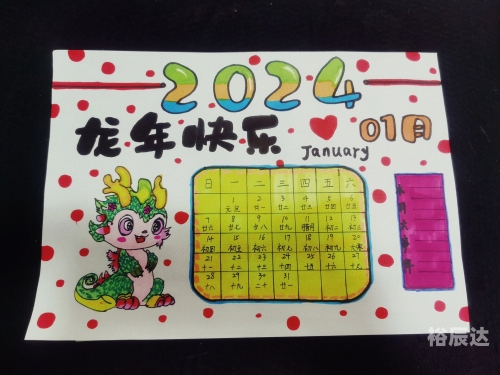 2024
龙年快乐
01月
January
日 一 二 三 四 五 六
1 2 3 4 5 6
元旦 廿一 廿二
7 8 9 10 11 12 13
廿六 廿九 腊月 初二 初三
14 15 16 17 18 19 20
初五 初六 初八 初九 大寒
21 22 23 24 25 26 27
十一 十二 十三 十四 十五 十六 十七
28 29 30 31
十八 十九 二十 廿一
裕辰达